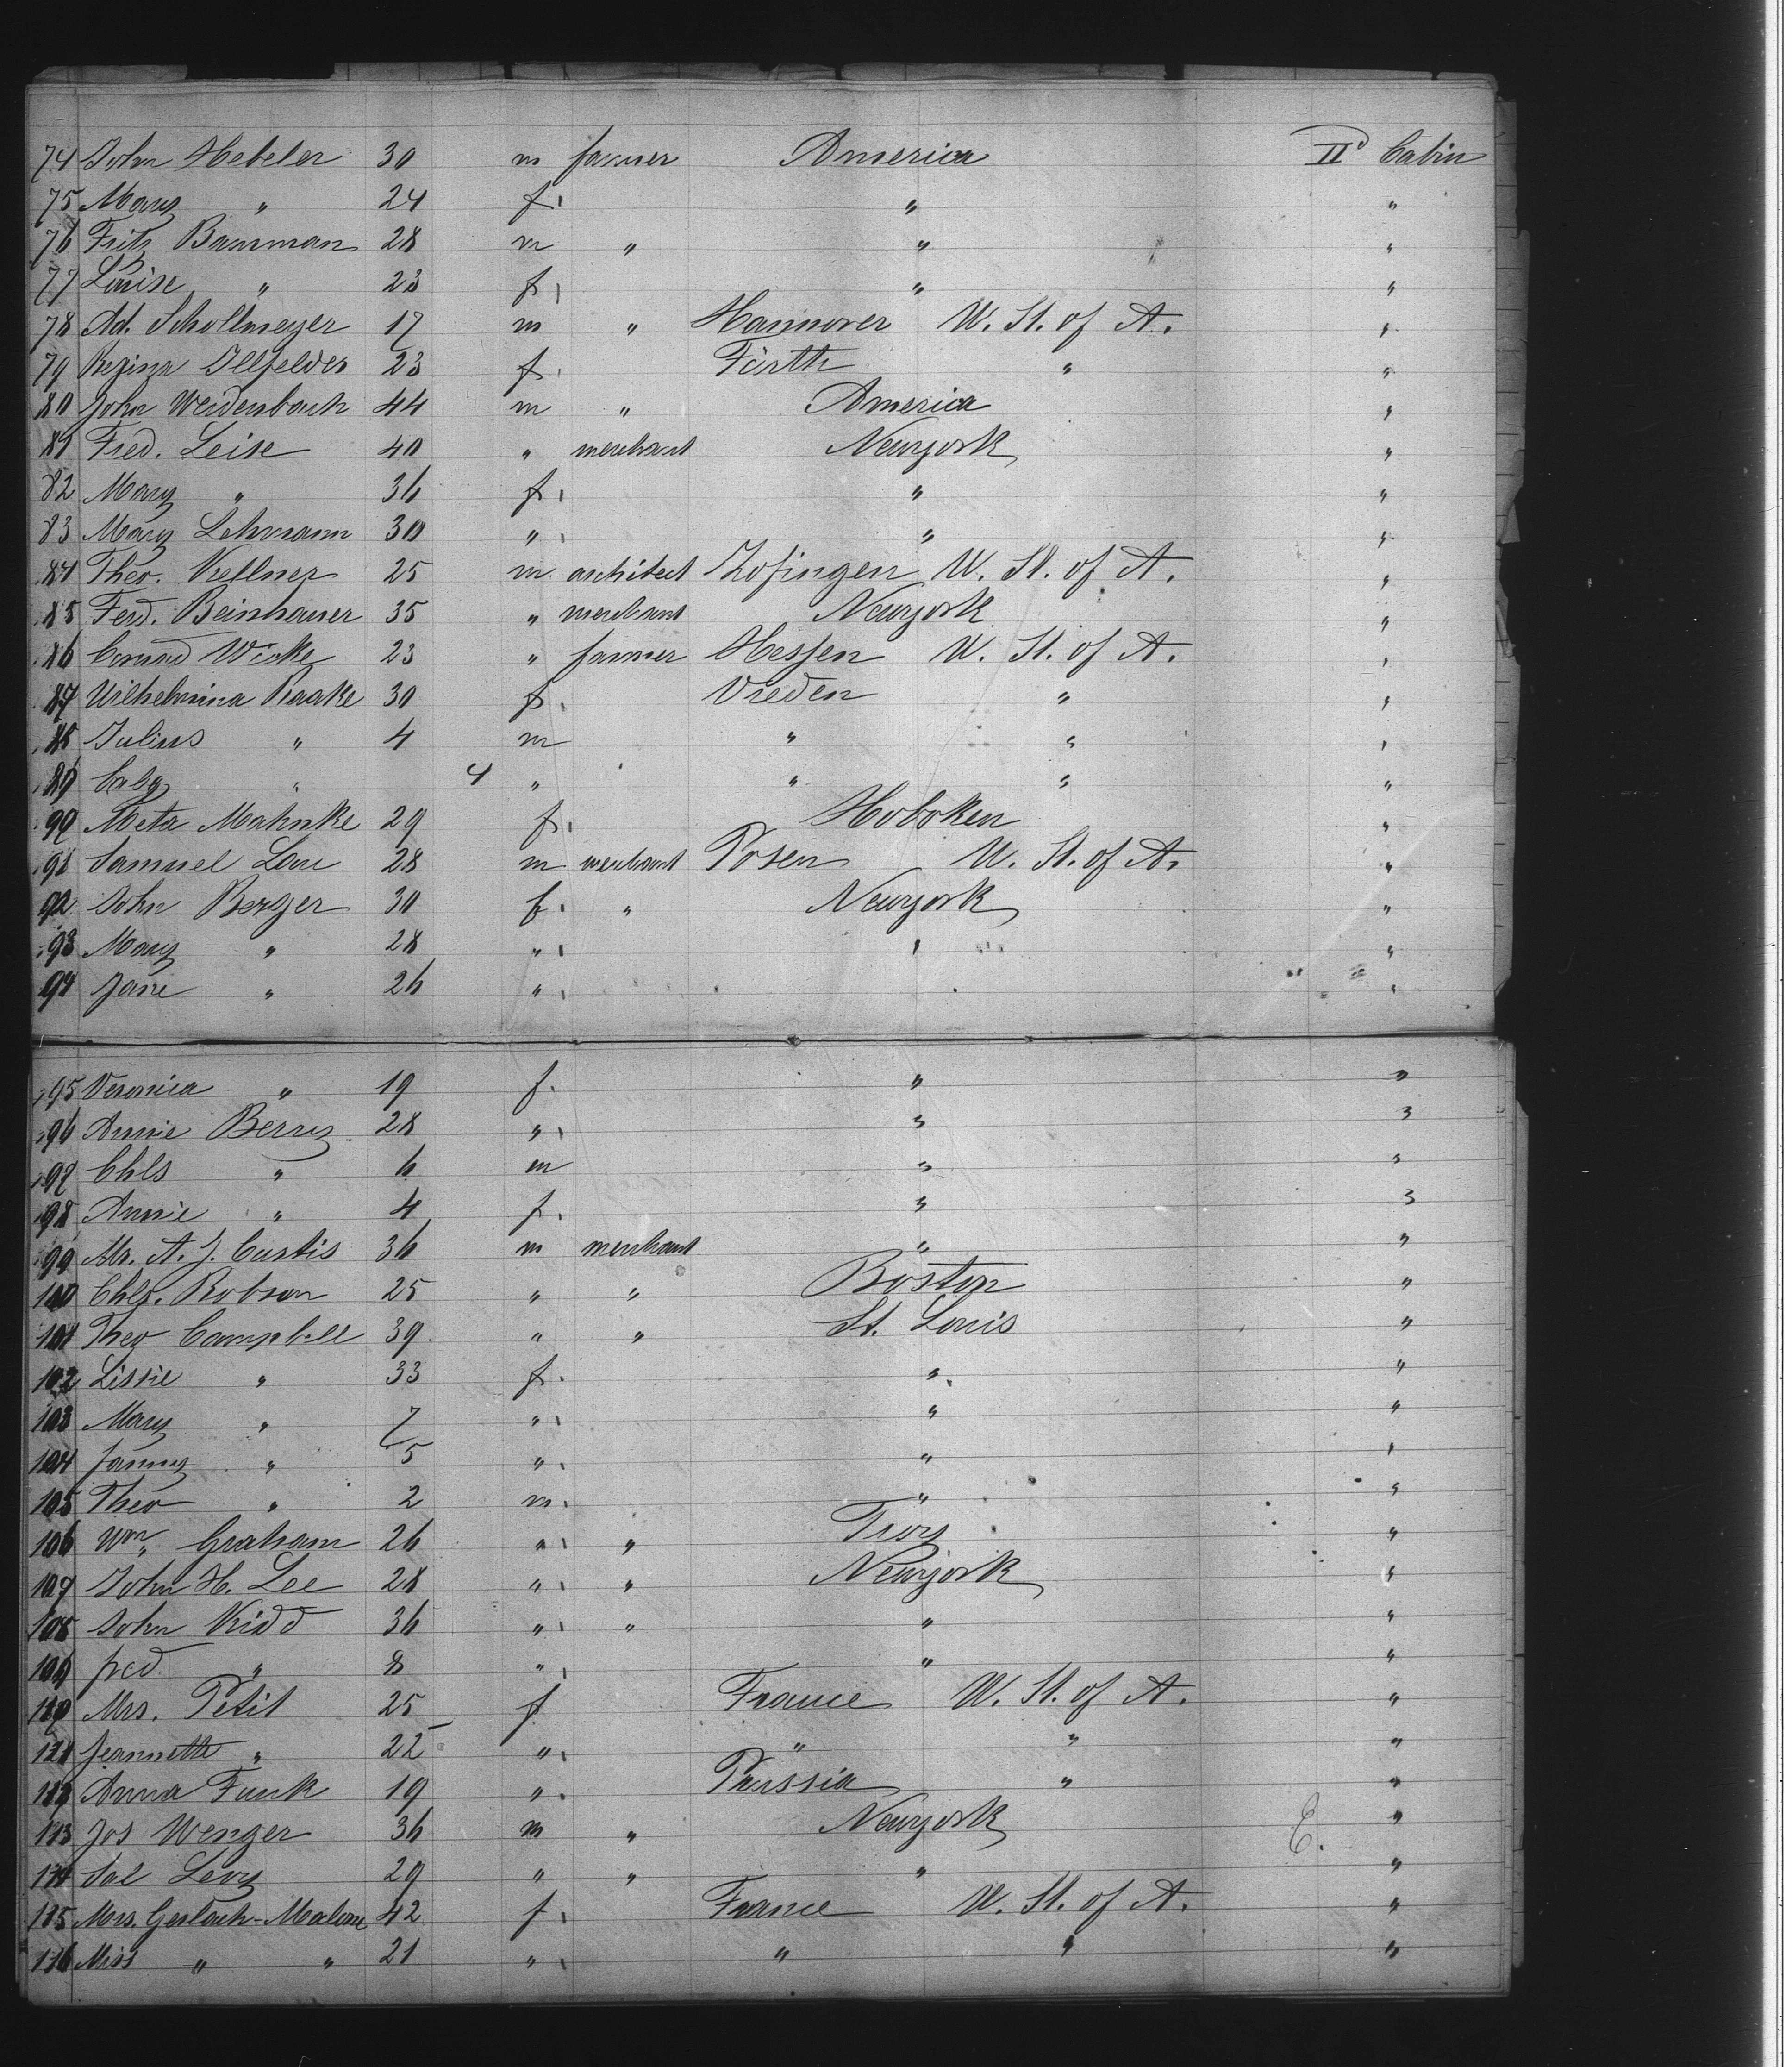 74 John Hebeler 30 m farmer America II Cabin
75 Mary " 24 f. " "
76 Fritz Baurman 28 m " " "
77 Louise " 23 f. " "
78 Ad. Schollmeyer 17 m " Hannover U. St. of A. "
79 Regina Illfelder 23 f. Fürth " "
80 John Weidenbach 44 m " America "
81 Fred. Leise 40 " merchant Newyork "
82 Mary " 36 f. " "
83 Mary Lehmann 30 " " "
84 Theo. Kellner 25 m architect Zofingen U. St. of A. "
85 Ferd. Beinhauer 35 " merchant Newyork "
86 Conrad Wicke 23 " farmer Hessen U. St. of A. "
87 Wilhelmina Raake 30 f. Vreden " "
88 Julius " 4 m " " "
89 Baby " 4 " " " "
90 Meta Mahnke 29 f. Hoboken "
91 Samuel 28 m merchant Posen U. St. of A. "
92 John Berger 30 f. " Newyork "
93 Mary " 28 " " "
94 Jane " 26 " "
95 Veronica " 19 f. " "
96 Annie Berry 28 " " "
97 Chls " 6 m " "
98 Annie " 4 f. " "
99 Mr. A. J. Curtis 36 m merchant " "
100 Chls. Robson 25 " " Boston "
101 Theo Campbell 39 " " St. Louis "
102 Lissie " 33 f. " "
103 Mary " 7 " " "
104 Fanny " 5 " " "
105 Theo " 2 m. " "
106 Wm. Graham 26 " " Troy "
107 John H. Lee 28 " " Newyork "
108 John Kidd 36 " " " "
109 fred " 8 " " "
110 Mrs. Petit 25 f France U. St. of A. "
111 Jeannette " 22 " " " "
112 Anna Funk 19 " Prussia " "
113 Jos Wenger 36 m " Newyork E. "
114 Sal Levy 29 " " " "
115 Mrs. Gerlach-Malone 42 f. France U. St. of A. "
116 Miss " " 21 " " " "